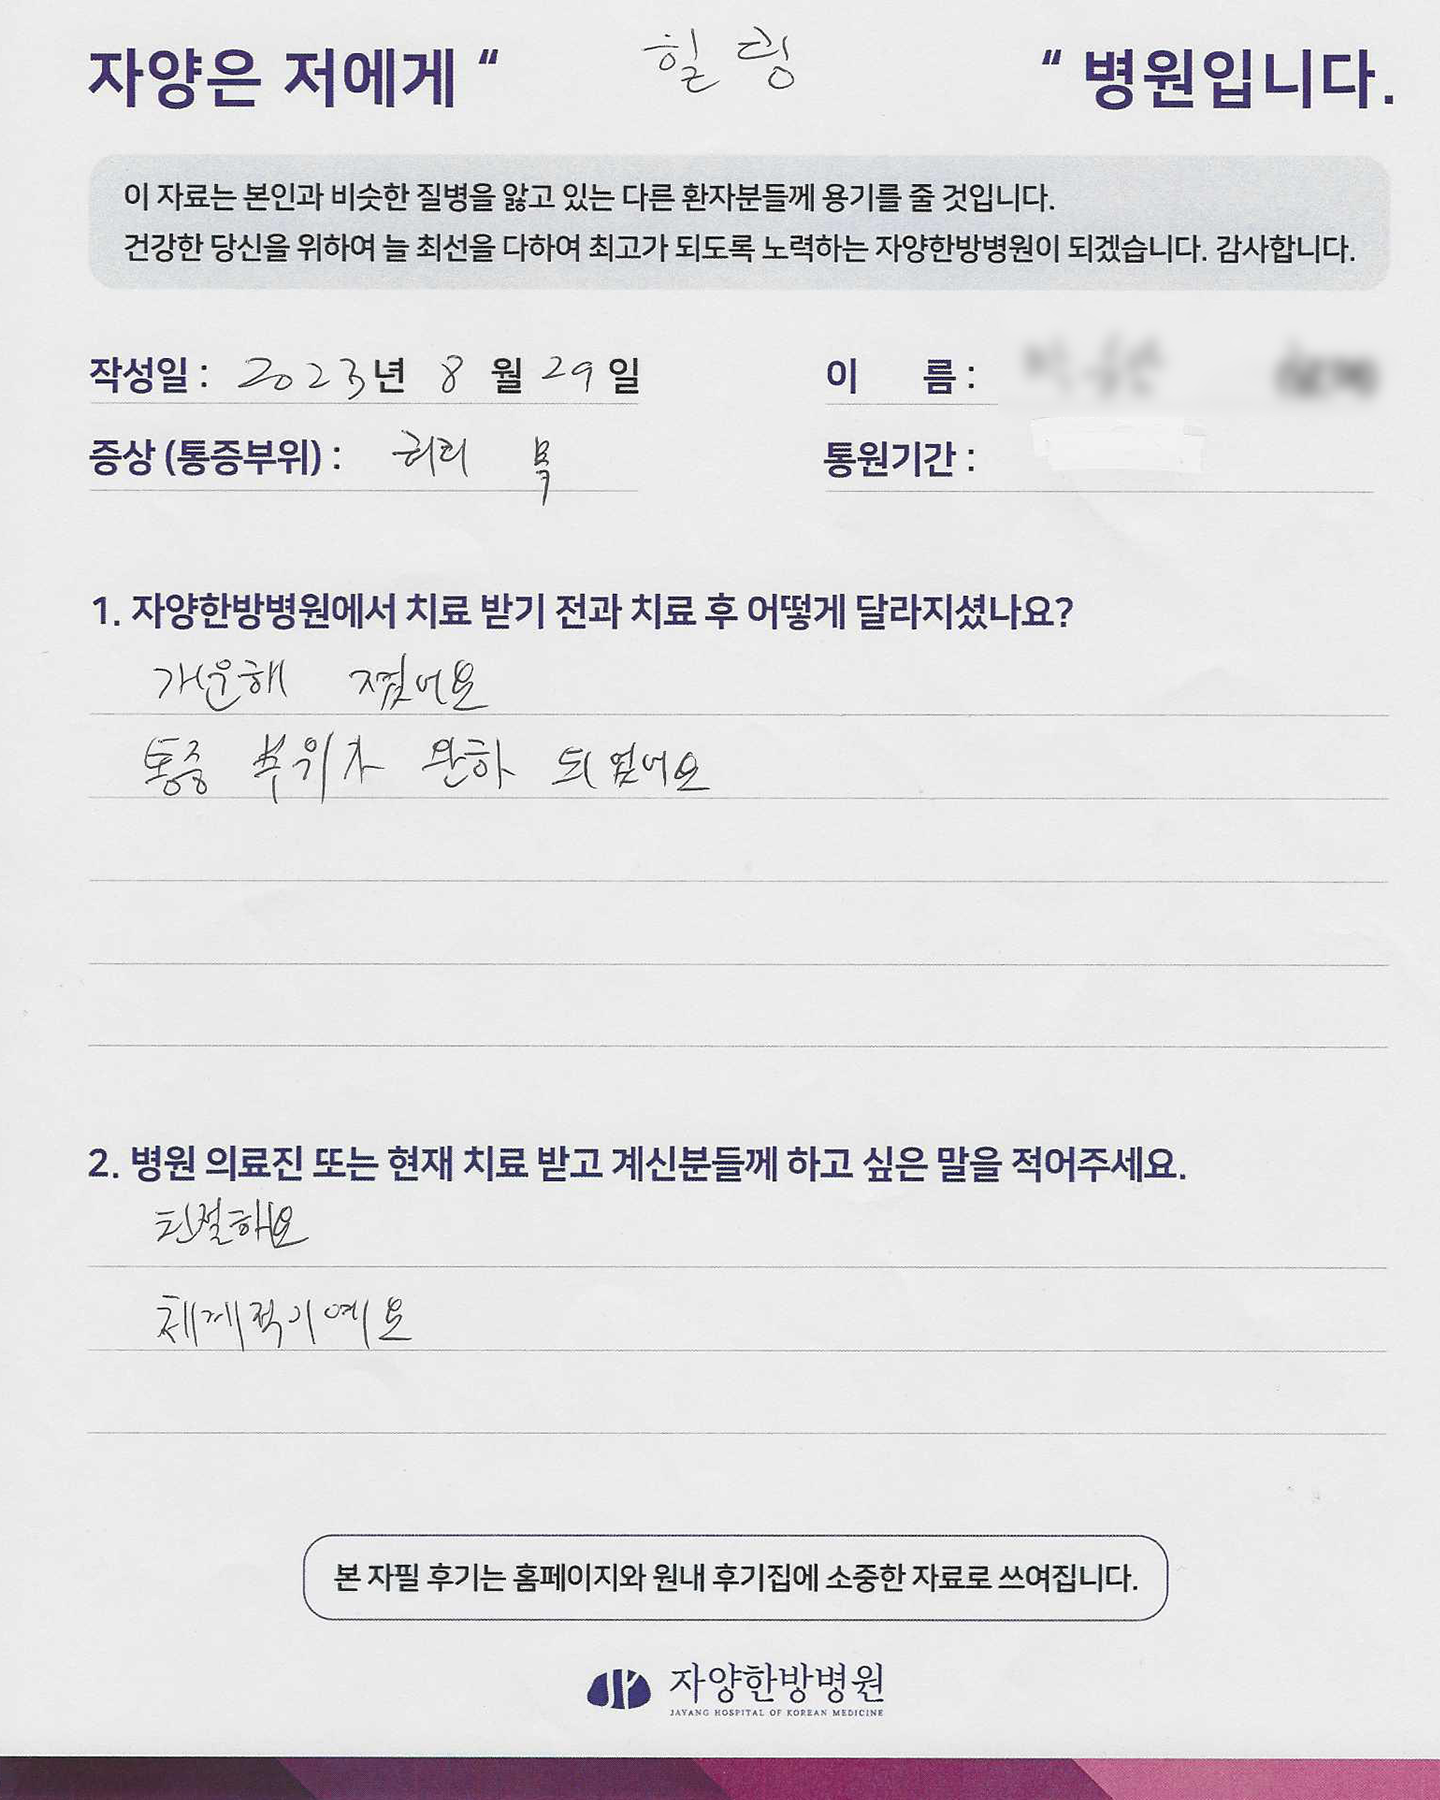 자양은 저에게 “ 힐링 “ 병원입니다.
이 자료는 본인과 비슷한 질병을 앓고 있는 다른 환자분들께 용기를 줄 것입니다.
건강한 당신을 위하여 늘 최선을 다하여 최고가 되도록 노력하는 자양한방병원이 되겠습니다. 감사합니다.
작성일 : 2023년 8월 29일 이 름 :
증상 (통증부위) : 허리 목 통원기간 :
1. 자양한방병원에서 치료 받기 전과 치료 후 어떻게 달라지셨나요?
개운해 졌어요
통증 부위가 완하 되었어요
2. 병원 의료진 또는 현재 치료 받고 계신분들께 하고 싶은 말을 적어주세요.
친절해요
체계적이예요
본 자필 후기는 홈페이지와 원내 후기집에 소중한 자료로 쓰여집니다.
자양한방병원
JAYANG HOSPITAL OF KOREAN MEDICINE